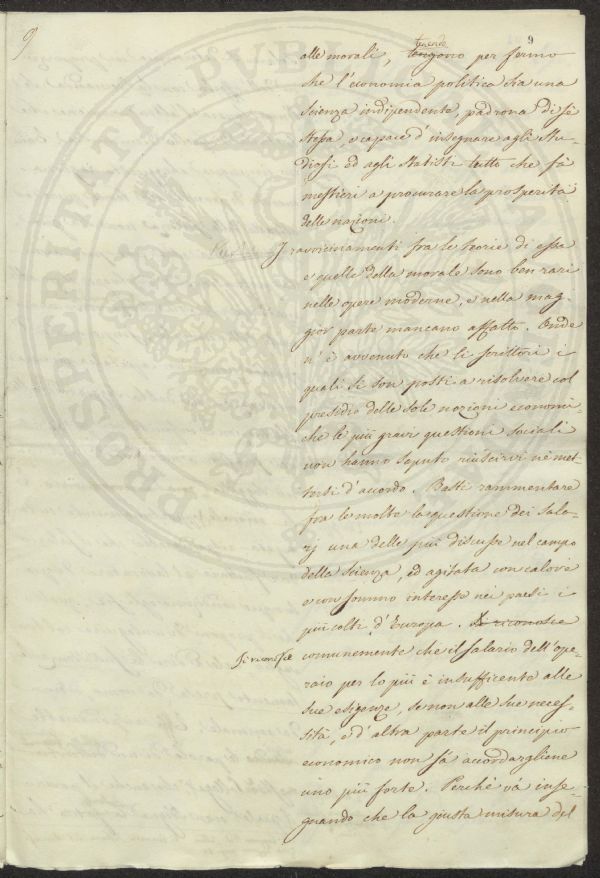 9
9
tenendo
alle morali, tengono per fermo
che l'economia politica sia una
scienza indipendente, padrona di sè
stessa, e capace d'insegnare agli Stu-
diosi ed agli Statisti tutto che fà
mestieri a procurare la prosperità
delle nazioni.
I ravvicinamenti fra le teorie di essa
e quelle della morale sono ben rari
nelle opere moderne, e nella mag-
gior parte mancano affatto. Onde
n'è avvenuto che li scrittori i
quali si son posti a risolvere col
presidio delle sole nozioni economi-
che le più gravi questioni sociali
non hanno saputo riuscirvi nè met-
tersi d'accordo. Basti rammentare
fra le molte la questione dei Sala-
rj una delle più discusse nel campo
della scienza, ed agitata con calore
e con sommo interesse nei paesi i
più colti d'Europa. Si riconosce
Si riconosce comunemente che il salario dell'ope-
raio per lo più è insufficente alle
sue esigenze, se non alle sue neces-
sità, e d'altra parte il principio
economico non sà accordargliene
uno più forte. Perchè và inse-
gnando che la giusta misura del
PROSPERITATI PUBLICAE